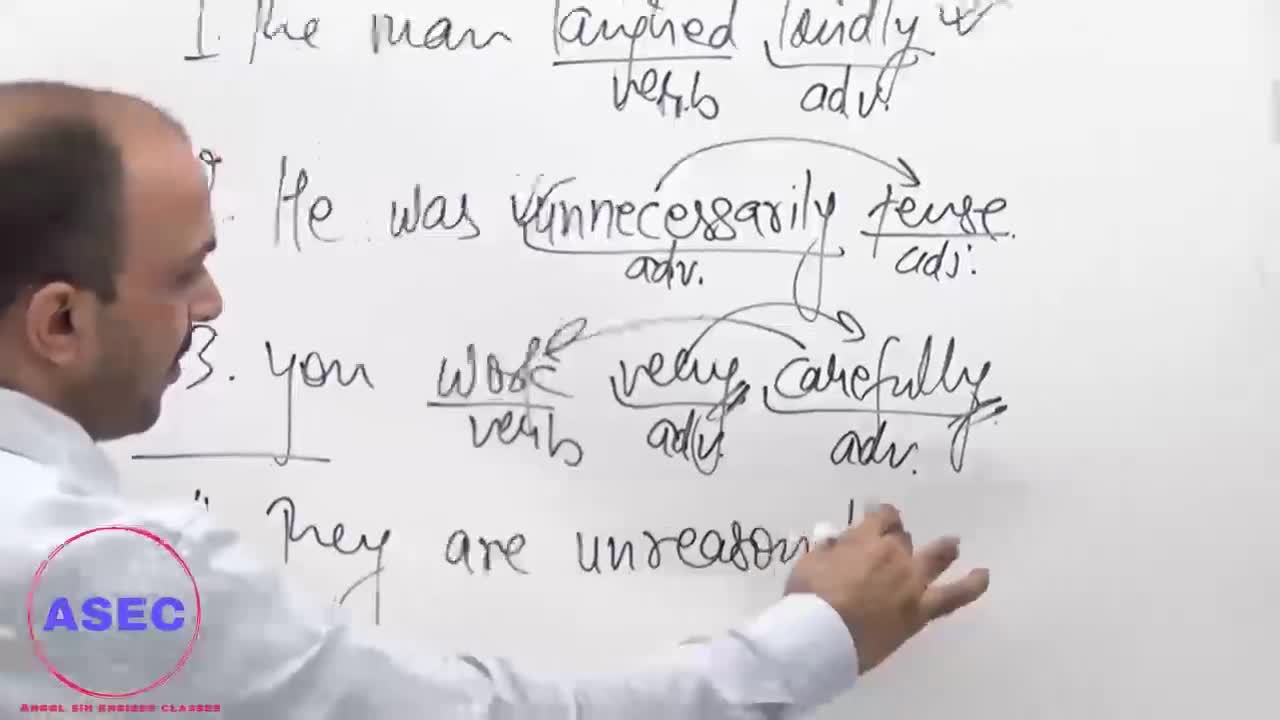 1. The man laughed loudly
verb adv.
He was unnecessarily tense.
adv. adj.
3. you work very carefully
verb adv. adv.
They are unreason
ASEC
ANGEL SIR ENGLISH CLASSES